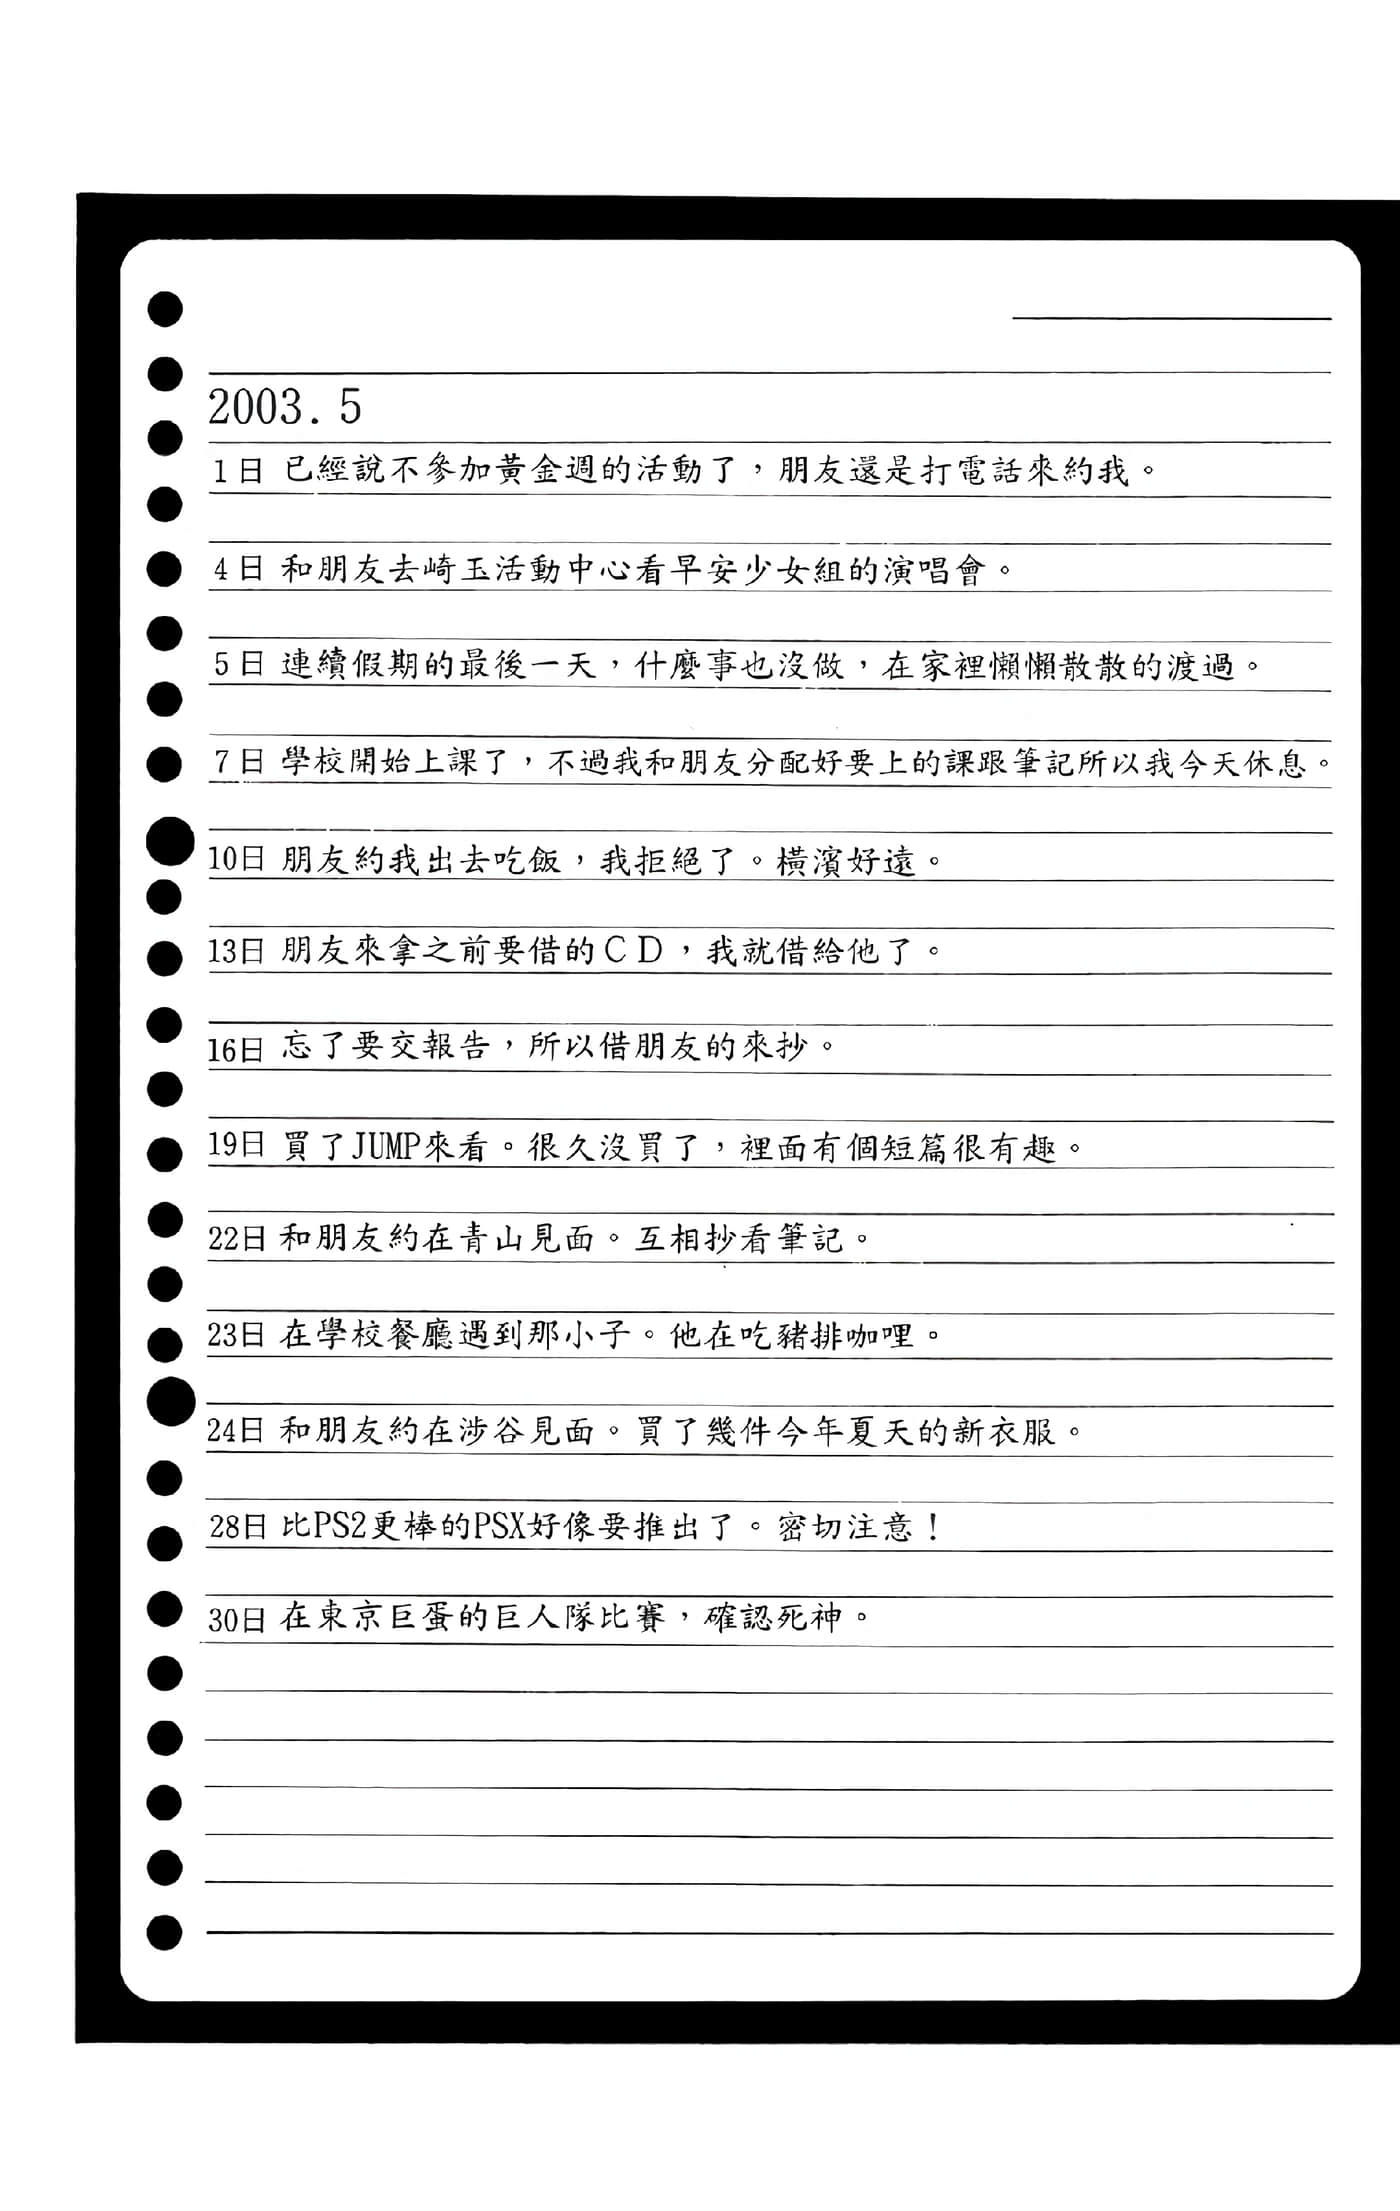 2003. 5
1日 已經說不參加黃金週的活動了，朋友還是打電話來約我。
4日 和朋友去崎玉活動中心看早安少女組的演唱會。
5日 連續假期的最後一天，什麼事也沒做，在家裡懶懶散散的渡過。
7日 學校開始上課了，不過我和朋友分配好要上的課跟筆記所以我今天休息。
10日 朋友約我出去吃飯，我拒絕了。橫濱好遠。
13日 朋友來拿之前要借的ＣＤ，我就借給他了。
16日 忘了要交報告，所以借朋友的來抄。
19日 買了JUMP來看。很久沒買了，裡面有個短篇很有趣。
22日 和朋友約在青山見面。互相抄看筆記。
23日 在學校餐廳遇到那小子。他在吃豬排咖哩。
24日 和朋友約在涉谷見面。買了幾件今年夏天的新衣服。
28日 比PS2更棒的PSX好像要推出了。密切注意！
30日 在東京巨蛋的巨人隊比賽，確認死神。